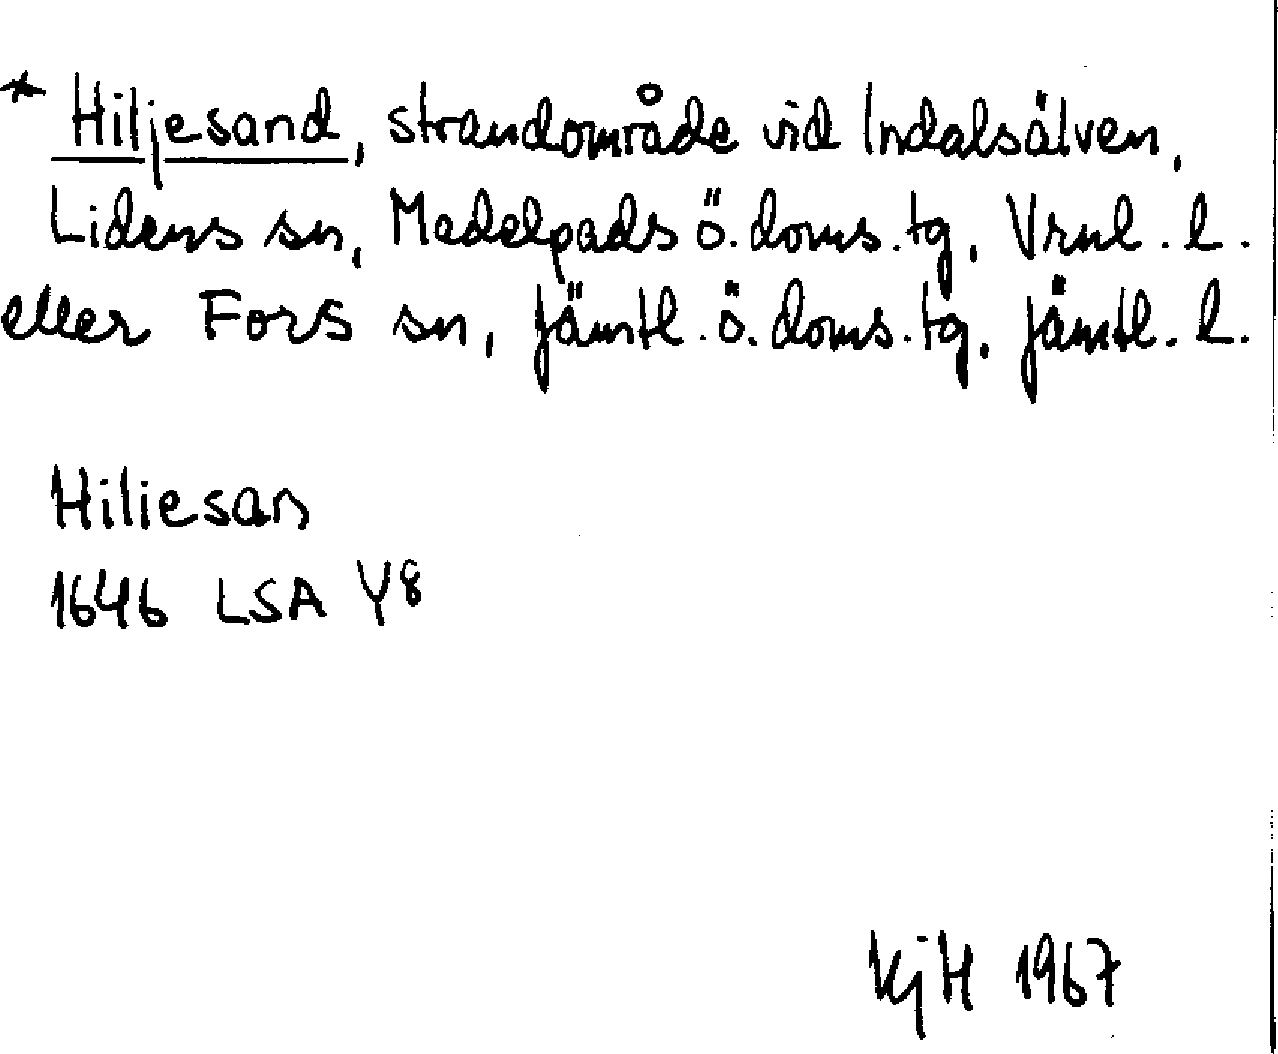 * Hiljesand, strandområde vid Indalsälven,
Lidens sn, Medelpads ö. doms. tg, Vrnl. l.
eller Fors sn, Jämtl. ö. doms. tg, Jämtl. l.
Hiliesan
1646 LSA Y8
KjH 1967